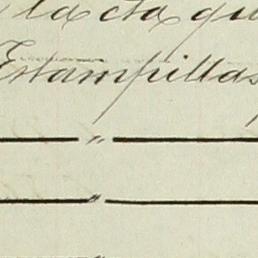 la cta que
Estampillas
"
"